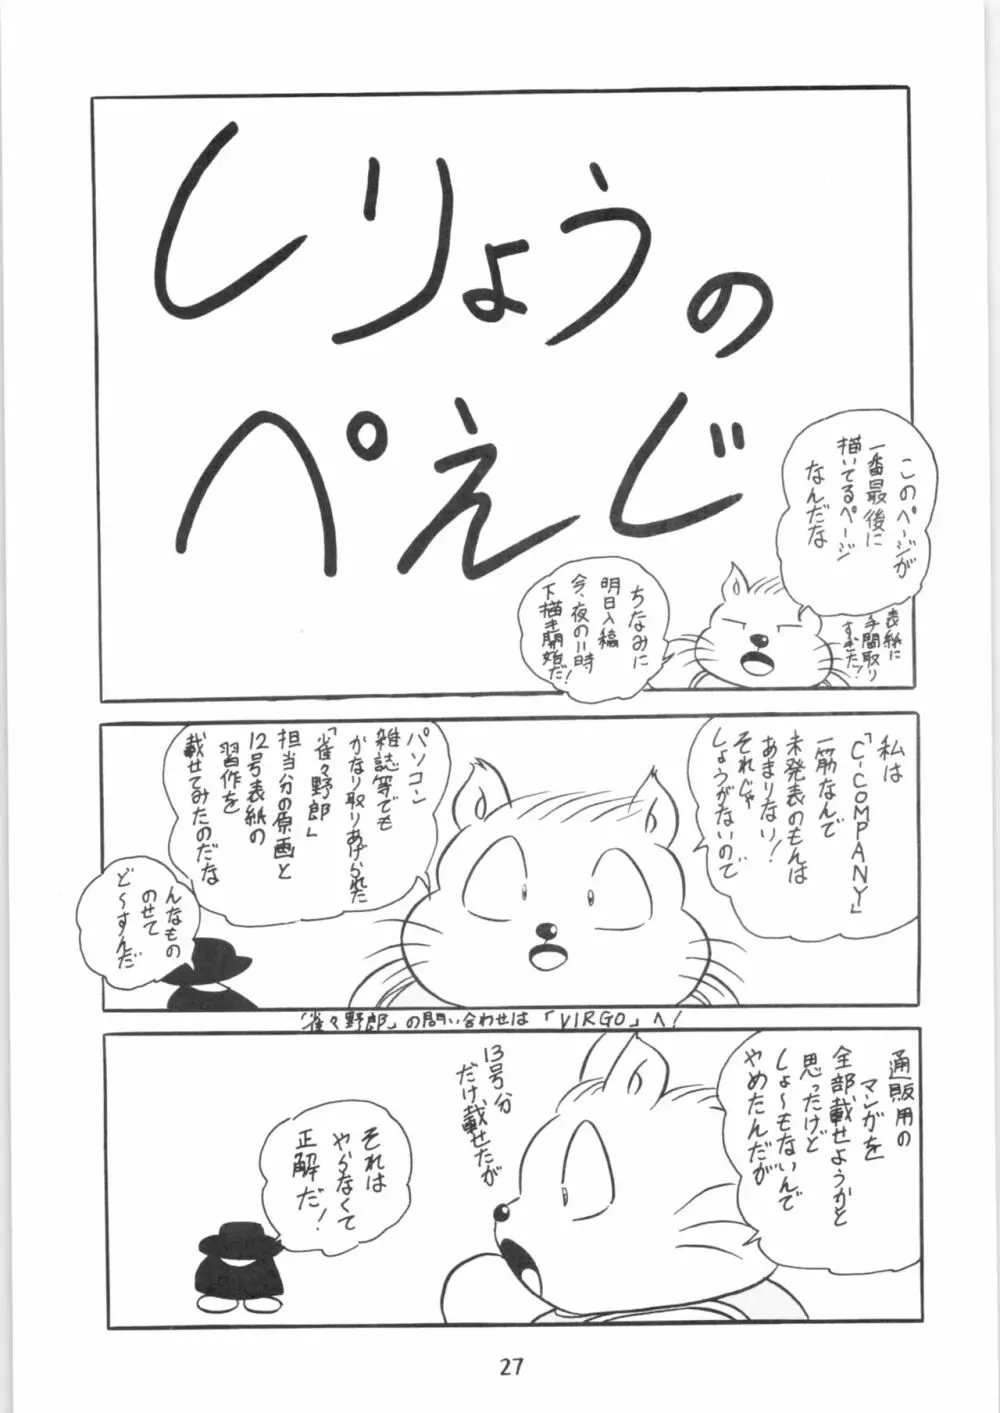 しりょうの
ぺえじ
このページが
一番最後に
描いてるページ
なんだな
表紙に
手間取り
すぎた!
ちなみに
明日入稿
今、夜の11時
下描き開始だ!
私は
「C-COMPANY」
一筋なんで
未発表のもんは
あまりない!
それじゃ
しょうがないので
パソコン
雑誌等でも
かなり取りあげられた
「雀々野郎」
担当分の原画と
12号表紙の
習作を
載せてみたのだな
んなもの
のせて
ど〜すんだ
「雀々野郎」の問い合わせは「VIRGO」へ!
通販用の
マンガを
全部載せようかと
思ったけど
しょ〜もないんで
やめたんだが
13号分
だけ載せたが
それは
やらなくて
正解だ!
27